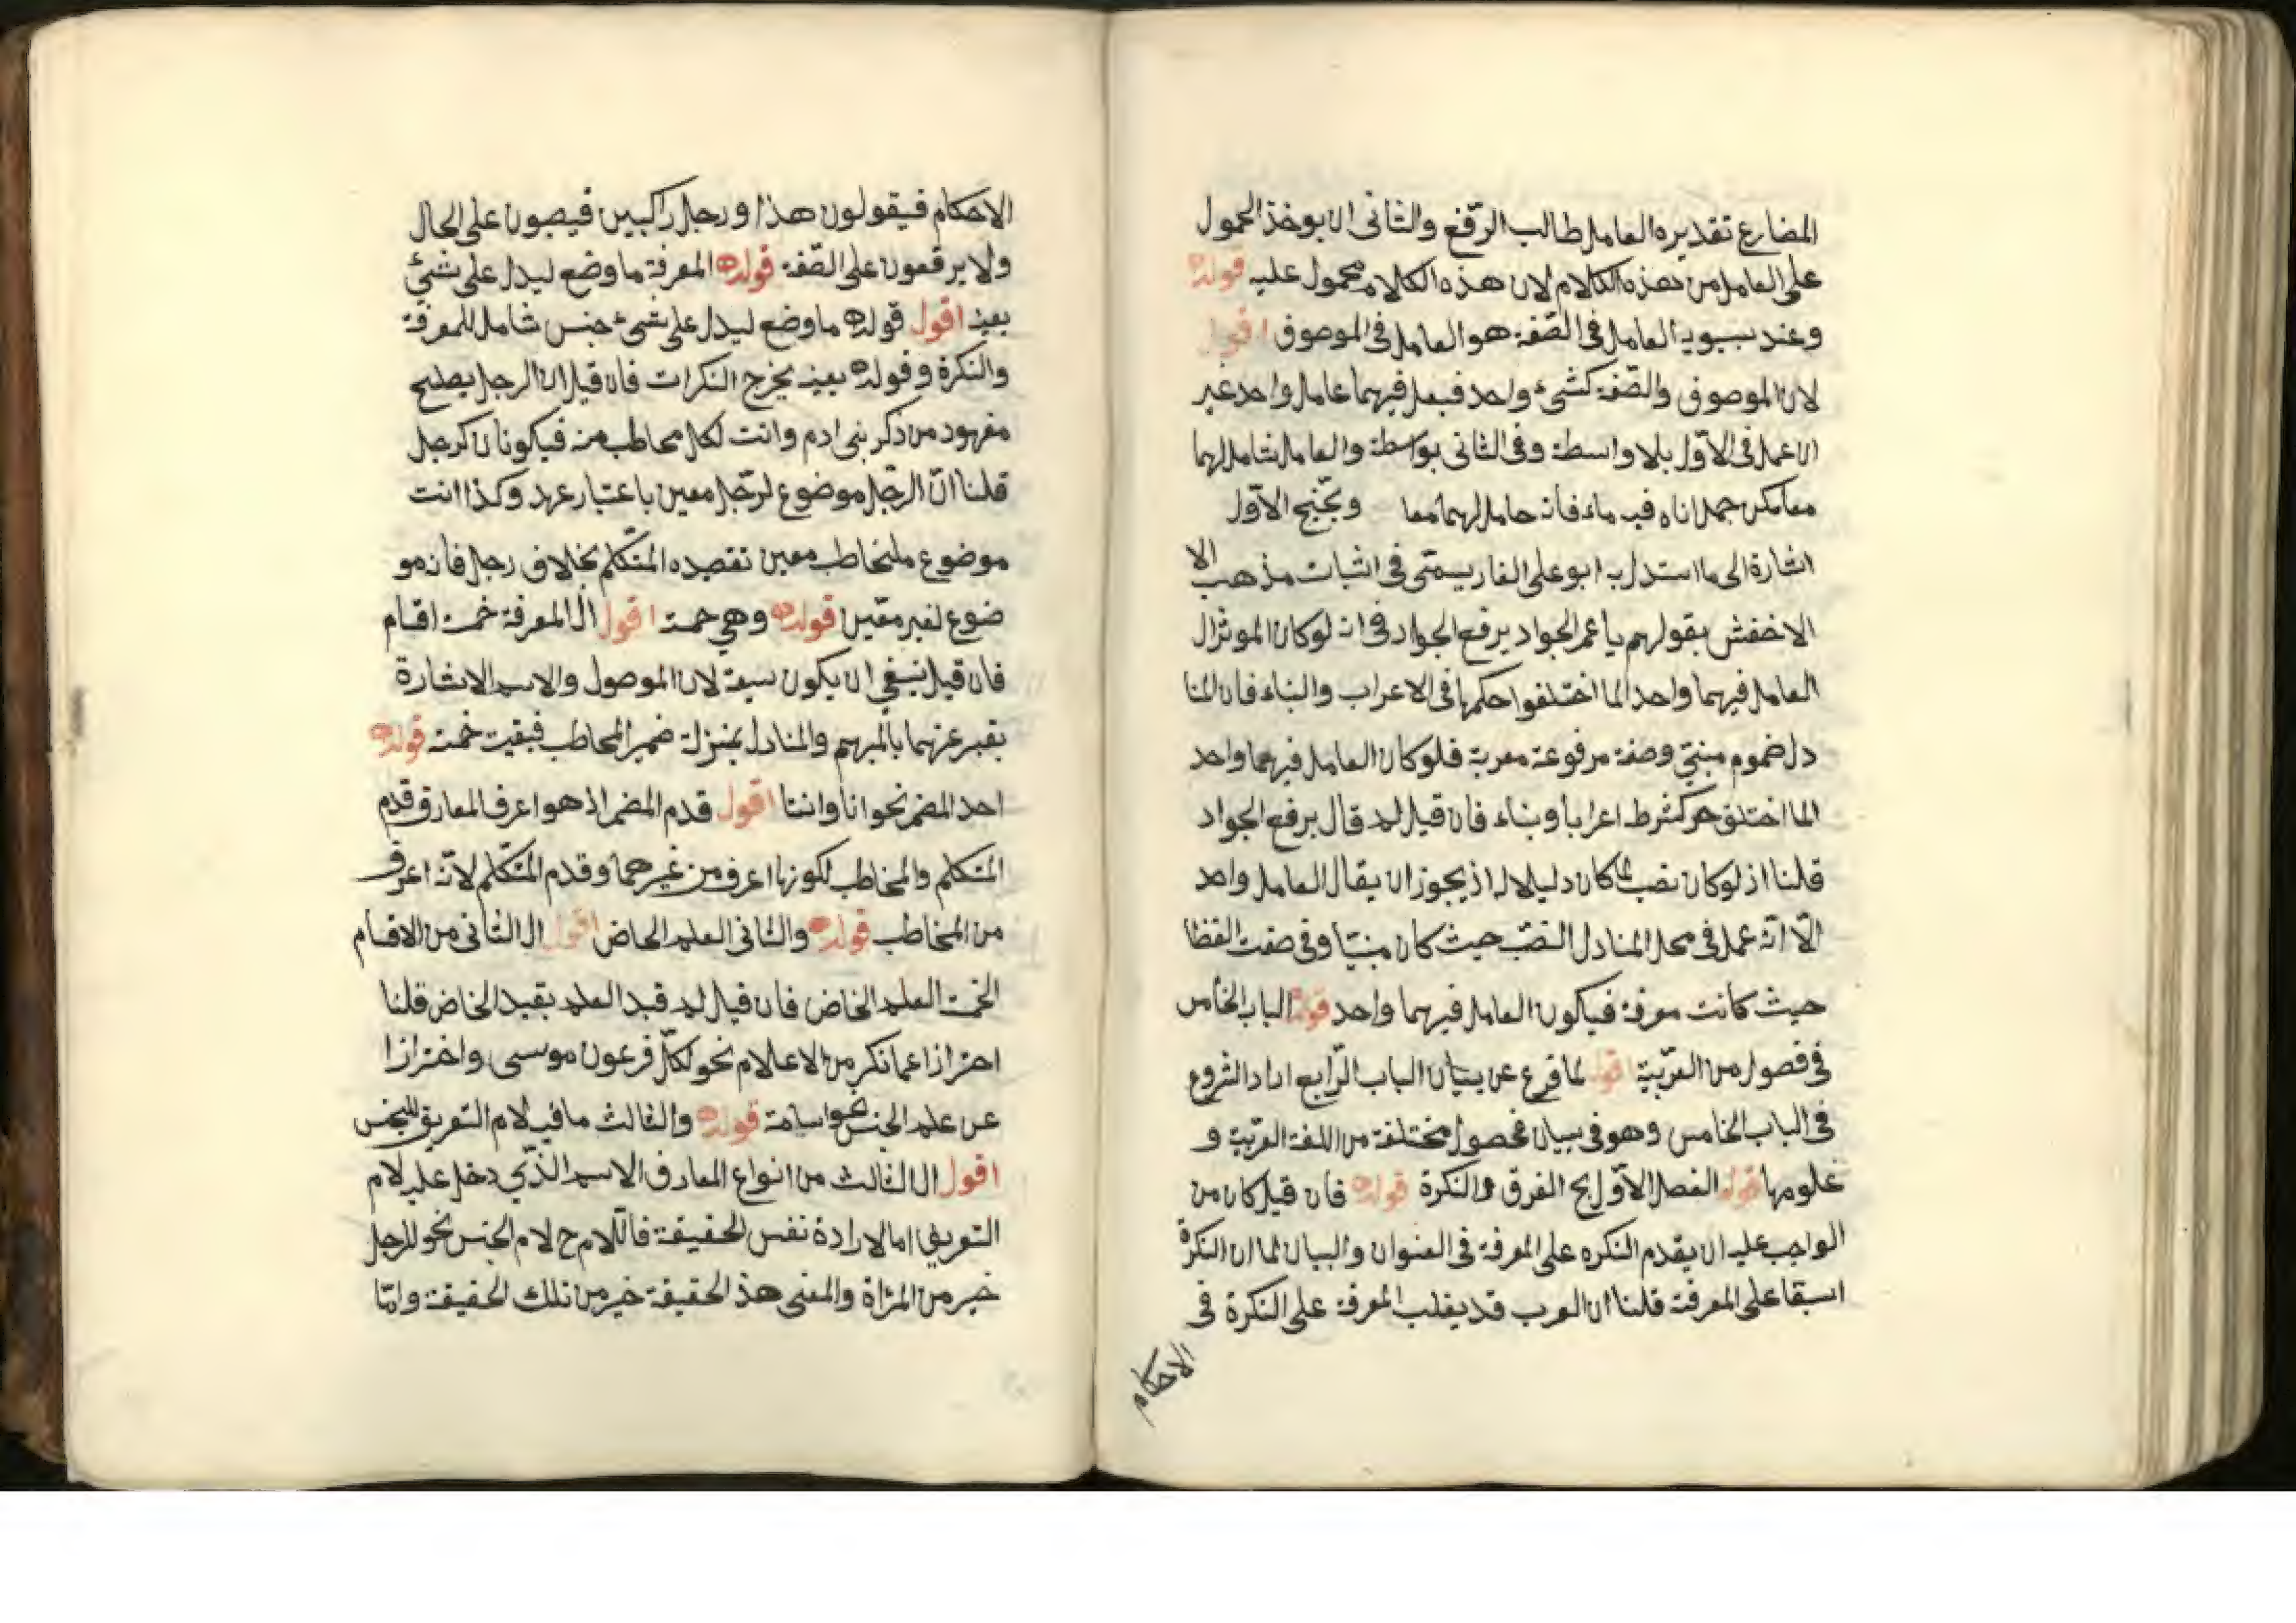 المضارع تقديره العامل طالب الرّفع والثانى ان يوخذ المحمول
على العامل من هذه الكلام لان هذه الكلام محمول عليه قوله
وعند سيبويه العامل فى الصّفة هو العامل فى الموصوف اقول
لان الموصوف والصّفة كشىء واحد فيعمل فيهما عامل واحد غير
ان عمل فى الاوّل بلا واسطة وفى الثانى بواسطة والعامل شامل لهما
معا مكن حمل اناه فيه ماء فانه حامل لهما معا ويحتج الاوّل
اشارة الى ما استدل به ابو على الفارسى فى اثبات مذهب الا
الاخفش بقولهم يا عمر الجواد برفع الجواد فى انه لو كان الموثر ال
العامل فيهما واحد لما اختلفوا حكمها فى الاعراب والبناء فان المنا
دل ضموم مبنىّ وصفة مرفوعة معربة فلو كان العامل فيهما واحد
لما اختلق اعرابا وبناء فان قيل لم قال برفع الجواد
قلنا اذ لو كان نصب لما كان دليلا له اذ يجوز ان يقال العامل واحد
الّا انّه عمل فى محل المنادل النصب حيث كان مبنيّا وفى صفت القظا
حيث كانت معرفة فيكون العامل فيهما واحد قوله الباب الخامس
فى فصول من العربّية اقول لما فرع عن بيان الباب الرّابع اراد الشروع
فى الباب الخامس وهو فى بيان فحصول مختلفة من اللغة العربّية و
علومها قوله الفصل الاوّل بح الفرق والنكرة قوله فان قيل كان من
الواجب عليه ان يقدم النكره على المعرفة فى العنوان والبيان لما ان النكرة
اسبقا على المعرفة قلنا ان العرب قد يغلب المعرفة على النكرة فى
الاحكام
الاحكام فيقولون هذا ورجل راكبين فيصبون على الحال
ولا يرفعون على الصّفة قوله المعرفة ما وضع ليدل على شىئ
بعينه اقول قوله ما وضع ليدل على شىء جنس شامل للمعرفة
والنكرة وقوله بعينه يخرج النكرات فان قيل ان الرجل يصلح
معهود من ذكر بنى ادم وانت لكل مخاطب منه فيكونان كرجل
قلنا انّ الرجل موضوع لرجّل معين باعتبار عهد وكذا انت
موضوع ملنخاطب معين تقصده المتكّلم بخلاف رجل فانه مو
ضوع لغير معّين قوله وهى خمسة اقول ال المعرفة خمسة اقسام
فان قيل ينبغى ان يكون سبعة لان الموصول والاسم الاشارة
يقبر عنهما بالمبهم والمنادل بمنزلة ضمير المخاطب فبقيت خمسة قوله
احد المضمر نحو انا وانتا اقول قدم المضمر اذ هو اعرف المعارق قدم
المتكلم والمخاطب لكونها اعرف من غيرهما وقدم المتكّلم لانّه اعرف
من المخاطب قوله والثانى العلم الخاض اقول ال الثانى من الاقسام
الخمسة العلم الخاض فان قيل لم قيد العلم بقيد الخاض قلنا
احترازا عما نكر من الاعلام نحو لكلّ فرعون موسى واخترازا
عن علم الجنس نحو اسامة قوله والثالث ما فيه لام التعريق للجنس
اقول ال الثالث من انواع المعارف الاسم الذّى دخل عليه لام
التعريفى اما لارادة نفس الحقيقة فالّلام ح لام الجنس نحو للرجل
خير من المرٔاة والمعنى هذ الحقيقة خير من تلك الحقيقة وامّا